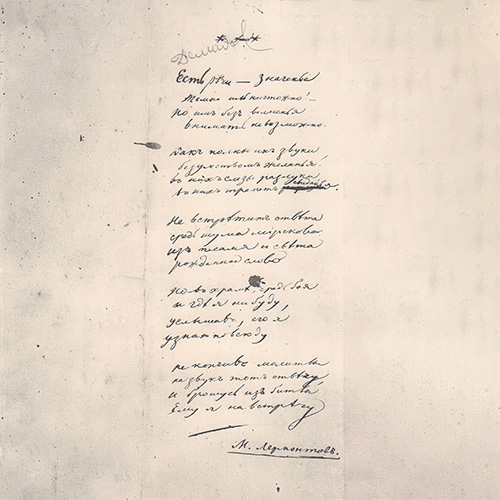 Есть рѣчи — значенье
Темно иль ничтожно! —
Но имъ безъ волненья
Внимать невозможно.
Какъ полны ихъ звуки
Безумствомъ желанья!
Въ нихъ слезы разлуки
Въ нихъ трепетъ свиданья.
Не встрѣтитъ отвѣта
Средь шума мірскова
Изъ пламя и свѣта
Рожденное слово
Но въ храмѣ, средь боя
И гдѣ я ни буду,
Услышавъ, его я
Узнаю повсюду
Не кончивъ молитвы
На звукъ тотъ отвѣчу
И брошусь изъ битвы
Ему я на встрѣчу
М. Лермонтовъ.